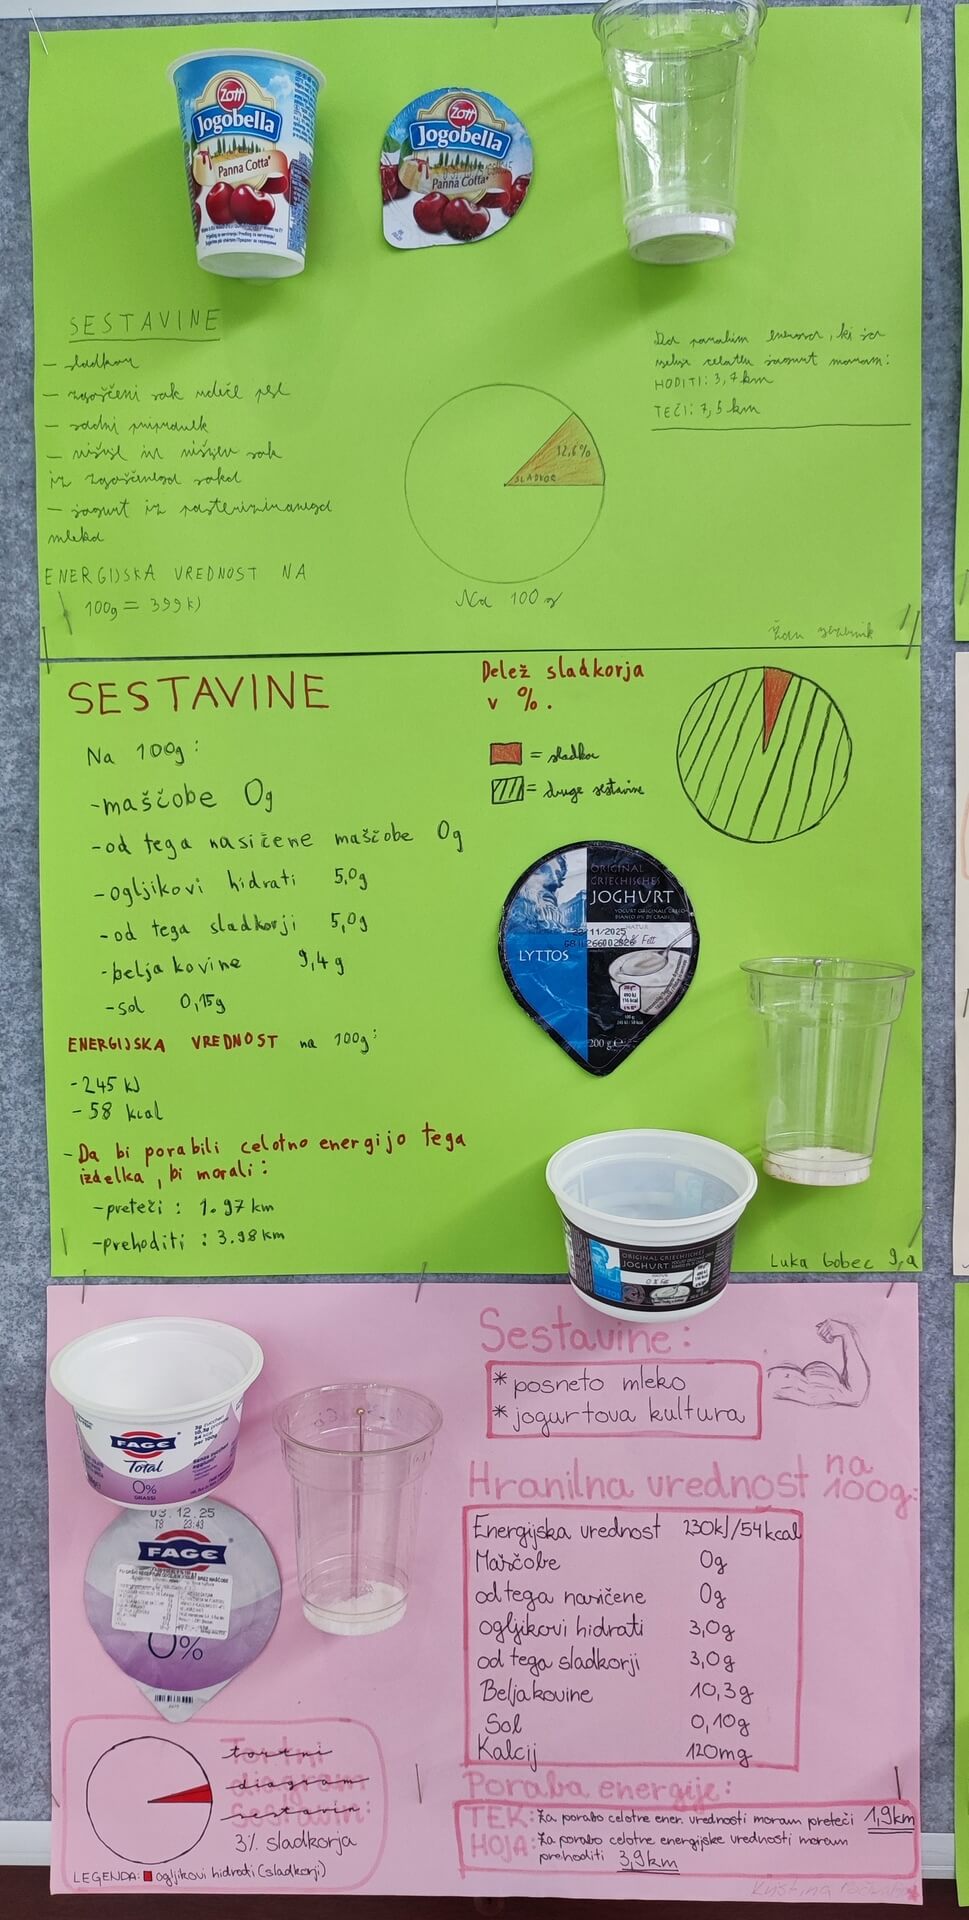 Zott
Jogobella
Panna Cotta*
Zott
Jogobella
Panna Cotta*
SESTAVINE
- sladkor
- zgoščeni sok rdeče pese
- sadni pripravek
- višnje in višnjev sok
iz zgoščenega soka
- jogurt iz pasteriziranega
mleka
ENERGIJSKA VREDNOST NA
100g = 399 kJ
12,6%
SLADKOR
Na 100 g
Da porabim energijo, ki jo
celotni jogurt moram:
HODITI: 3,7 km
TEČI: 7,5 km
Žan
SESTAVINE
Na 100g:
-maščobe 0g
-od tega nasičene maščobe 0g
-ogljikovi hidrati 5,0g
-od tega sladkorji 5,0g
-beljakovine 9,4g
-sol 0,15g
ENERGIJSKA VREDNOST na 100g:
-245 kJ
-58 kcal
-Da bi porabili celotno energijo tega
izdelka, bi morali:
-preteči: 1.97 km
-prehoditi: 3.98 km
Delež sladkorja
v %.
= sladkor
= druge sestavine
ORIGINAL
GRIECHISCHES
JOGHURT
NATUR
0% Fett
LYTTOS
490 kJ
116 kcal
200 g e
ORIGINAL GRIECHISCHES
JOGHURT
0% Fett
LYTTOS
Luka Gobec 9.a
FAGE
Total
0%
GRASSI
3g zuccheri
10,3g proteine
54 kcal
per 100g
03.12.25
T8 23:43
FAGE
0%
Sestavine:
* posneto mleko
* jogurtova kultura
Hranilna vrednost na
100g:
Energijska vrednost 230kJ/54kcal
Maščobe 0g
od tega nasičene 0g
ogljikovi hidrati 3,0g
od tega sladkorji 3,0g
Beljakovine 10,3g
Sol 0,10g
Kalcij 120mg
Tortni
diagram
sestavin:
3% sladkorja
LEGENDA: ogljikovi hidrati (sladkorji)
Poraba energije:
TEK: Za porabo celotne ener. vrednosti moram preteči 1,9km
HOJA: Za porabo celotne energijske vrednosti moram
prehoditi 3,9km
Kristina